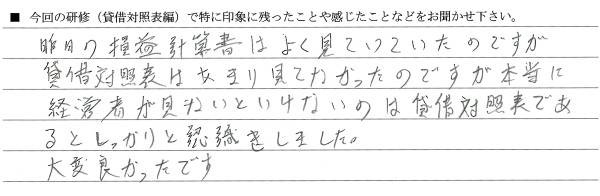 ■ 今回の研修（貸借対照表編）で特に印象に残ったことや感じたことなどをお聞かせ下さい。
昨日の損益計算書はよく見ていっていたのですが
貸借対照表はあまり見てなかったのですが本当に
経営者が見ないといけないのは貸借対照表であ
るとしっかりと認識きしました。
大変良かったです